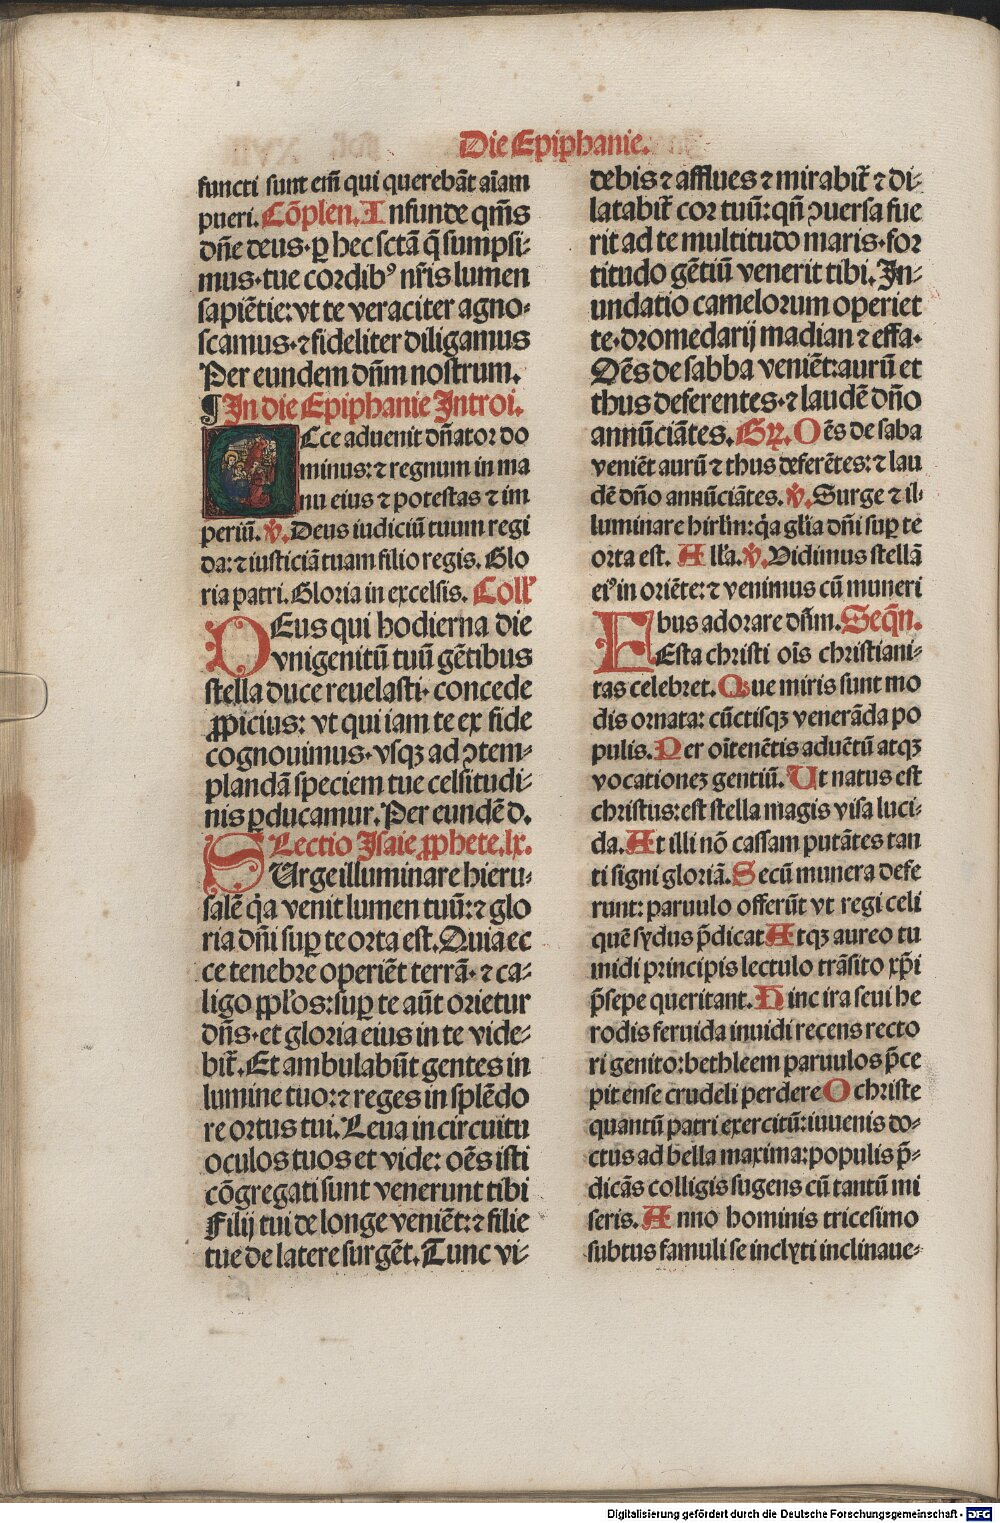 Die Epiphanie.
functi sunt em̄ qui querebāt aīam
pueri. Cōplen. Infunde qm̄s
dn̄e deus·ꝑ hec sctā q̄ sumpsi⸗
mus·tue cordibꝰ nr̄is lumen
sapiētie:vt te veraciter agno⸗
scamus·⁊ fideliter diligamus
Per eundem dn̄m nostrum.
¶ In die Epiphanie Introi.
Ecce aduenit dn̄ator do
minus:⁊ regnum in ma
nu eius ⁊ potestas ⁊ im
periū. ℣. Deus iudiciū tuum regi
da:⁊ iusticiā tuam filio regis. Glo
ria patri. Gloria in excelsis. Coll'
DEus qui hodierna die
vnigenitū tuū gētibus
stella duce reuelasti· concede
ꝓpicius: vt qui iam te ex fide
cognouimus·vsqꝫ ad ꝯtem⸗
plandā speciem tue celsitudi⸗
nis ꝑducamur. Per eundē d.
Lectio Isaie ꝓphete.lx.
SUrge illuminare hieru⸗
salē q̇a venit lumen tuū:⁊ glo
ria dn̄i suꝑ te orta est. Quia ec
ce tenebre operiēt terrā·⁊ ca⸗
ligo ꝓpl'os:suꝑ te aūt orietur
dn̄s·et gloria eius in te vide⸗
bit̄. Et ambulabūt gentes in
lumine tuo:⁊ reges in splēdo
re ortus tui. Leua in circuitu
oculos tuos et vide: oēs isti
cōgregati sunt venerunt tibi
Filij tui de longe veniēt:⁊ filie
tue de latere surgēt. Tunc vi⸗
debis ⁊ afflues ⁊ mirabit̄ ⁊ di⸗
latabit̄ cor tuū:qn̄ ꝯuersa fue
rit ad te multitudo maris·for
titudo gētiū venerit tibi. In⸗
undatio camelorum operiet
te·dromedarij madian ⁊ effa·
Oēs de sabba veniēt:aurū et
thus deferentes·⁊ laudē dn̄o
annūciātes. Gꝛ. Oēs de saba
veniēt aurū ⁊ thus deferētes:⁊ lau
dē dn̄o annūciātes. ℣. Surge ⁊ il⸗
luminare hirlm̄:q̇a gl'ia dn̄i suꝑ te
orta est. All'a. ℣. Vidimus stellā
eiꝰ in oriēte:⁊ venimus cū muneri
bus adorare dn̄m. Seqn̄.
FEsta christi oīs christiani⸗
tas celebret. Que miris sunt mo
dis ornata: cūctisqꝫ venerāda po
pulis. Per oītenētis aduētū atqꝫ
vocationeꝫ gentiū. Ut natus est
christus:est stella magis visa luci⸗
da. At illi nō cassam putātes tan
ti signi gloriā. Secū munera defe
runt: paruulo offerūt vt regi celi
quē sydus p̄dicat Atqꝫ aureo tu
midi principis lectulo trāsito xp̄i
p̄sepe queritant. Hinc ira seui he
rodis feruida inuidi recens recto
ri genito:bethleem paruulos p̄ce
pit ense crudeli perdere O christe
quantū patri exercitū:iuuenis do⸗
ctus ad bella maxima:populis p̄⸗
dicās colligis sugens cū tantū mi
seris. Anno hominis tricesimo
subtus famuli se inclyti inclinaue⸗
Digitalisierung gefördert durch die Deutsche Forschungsgemeinschaft - DFG